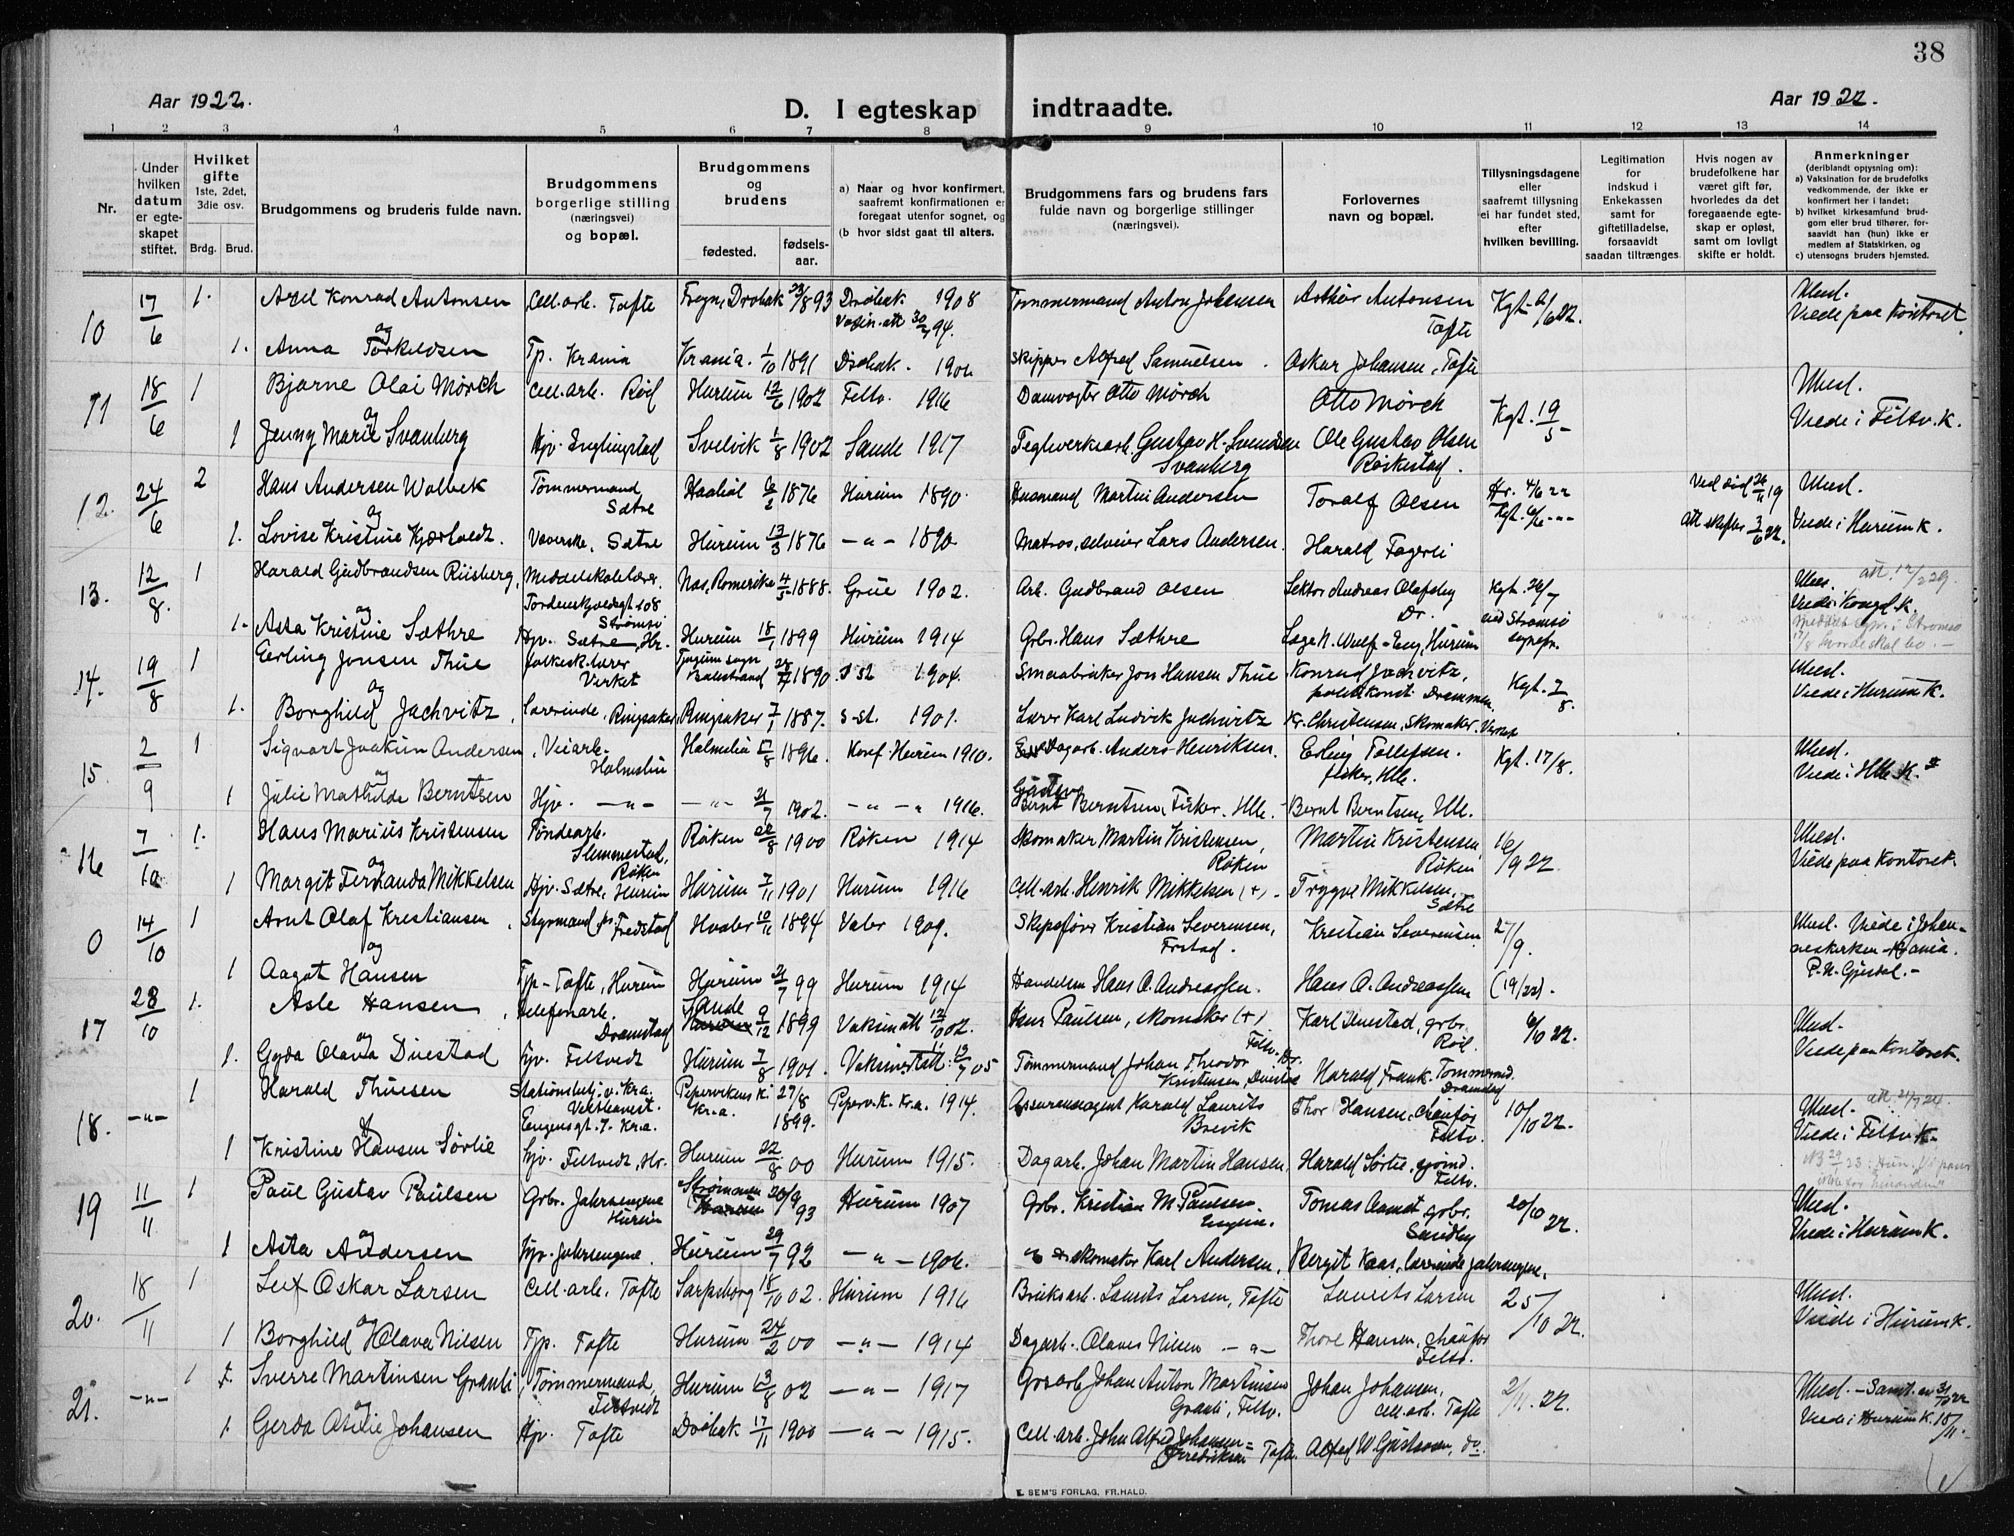 38
Aar 1922.
D. I egteskap indtraadte.
Aar 1922.
1 2 3 4 5 6 7 8 9 10 11 12 13 14
Nr.
Under hvilken datum er egteskapet stiftet.
Hvilket gifte 1ste, 2det, 3die osv.
Brdg. Brud.
Brudgommens og brudens fulde navn.
Brudgommens borgerlige stilling (næringsvei) og bopæl.
Brudgommens og brudens
fødested. fødsels-aar.
a) Naar og hvor konfirmert, saafremt konfirmationen er foregaat utenfor sognet, og
(b hvor sidst gaat til alters.
Brudgommens fars og brudens fars fulde navn og borgerlige stillinger (næringsvei).
Forlovernes navn og bopæl.
Tillysningsdagene eller saafremt tillysning ei har fundet sted, efter hvilken bevilling.
Legitimation for indskud i Enkekassen samt for giftetilladelse, forsaavidt saadan tiltrænges
Hvis nogen av brudefolkene har været gift før, hvorledes da det foregaaende egteskap er opløst, samt om lovligt skifte er holdt.
Anmerkninger
(deriblandt opjysning om):
a) Vaksination for de brudefolks vedkommende, der ikke er konfirmert her i landet;
b) hvilket kirkesamfund brudgom eller brud tilhører, forsaavidt han (hun) ikke er medlem af Statskirken, og
c) utensogns bruders hjemsted.
10 17/6 1. Axel Konrad Antonsen Cell.arb. Tofte Frogn, Drøbak 23/8 93 Drøbak 1908 Tømmermand Anton Johansen Arthur Antonsen Tofte Kgt. 6/6 22. Ugd. Viede paa Kontoret.
Vaxin. att 30/7 94.
og
1. Anna Torkildsen Tp. Krania Krania 1/10 1891 Drøbak 1906 Skipper Alfred Samuelsen Oskar Johansen, Tofte
11 18/6 1 Bjarne Olai Mørch Cell.arb. Røil Hurum 12/6 1902 Filtv. 1916 Damvogter Otto Mørch Otto Mørch Kgt. 19/5 Viede i Filtv. K.
og
1 Jenny Marie Svanberg Hjv. Englingstad Svelvik 1/8 1902 Sande 1917 Teglverksarb. Gustav H. Svendsen Svanberg Ole Gustav Olsen Røikestad.
12. 24/6 2 Hans Andersen Wolbek Tømmermand Sætre 6/2 1876 Hurum 1890. Husmand Martin Andersen Toralf Olsen Hr. 4/6 22 Kgt. 6/6 -"- Ved død 24/11 19 Viede i Hurum K.
og
1. Lovise Kristine Kjærholdt. Væverske, Sætre Hurum 13/3 1876 -"- 1890. Matros, selveier Lars Andersen. Harald Fagerli Att skifter 3/6 22.
13. 12/8. 1 Harald Gudbrandsen Riisberg, Middelskolelærer. Tordenskjoldsgt 108 Strømsø Nes, Romerike 4/5 1888. Grue 1902. Arb. Gudbrand Olsen Lektor Andreas Olafsby Dr. Kgt. 26/7 ved Strømsø sognepr. att. 12/2 29. Viede i Kongd. K.
og
1. Asta Kristine Sæthre Hjv. Sætre, Hr. Hurum 18/7 1899 Hurum 1914 Grbr. Hans Sæthre Læge N. Wulf-Eng, Hurum
14. 19/8 1 Eerling Jonsen Thue folkesk.lærer Verket Tjugum sogn Balestrand 28/7 1890. S. st. 1904. Smaabruker Jon Hansen Thue Konrad Jachvitz, politikonst. Drammen Kgt. 7/8. Viede i Hurum K.
og
1. Borghild Jachvitz, Lærerinde, Ringsaker Ringsaker 7/1 1887. s-st. 1901. Lærer Karl Ludvik Jachvitz Kr. Christensen, Skomaker. Verket
15. 2/9 1 Sigvart Joakim Andersen, Veiarb. Holmsbu Holmsbu 5/8 1896. Konf. Hurum 1910. Dagarb. Anders Henriksen. Erling Tollefsen. fisker, Hlb. Kgt. 17/8. Viede i Hlb. K.
og
1 Julie Mathilde Berntsen Hjv. -"- -"- 21/7 1902. -"- 1916. Bernt Berntsen, Fisker. Hlb. Bernt Berntsen, Hlb.
16 7/10 1. Hans Marius Kristensen Tøndearb. Slemmestad, Røken Røken 22/8 1900 Røken 1914 Skomaker Martin Kristensen, Røken Martin Kristensen Røken 16/9 22. Viede paa Kontoret.
og
1 Margit Fernanda Mikkelsen Hjv. Sætre, Hurum Hurum 7/11 1901 Hurum 1916 Cell.arb. Henrik Mikkelsen (+) Trygve Mikkelsen, Sætre
0 14/10 1 Arnt Olaf Kristiansen, Styrmand, pr. Fredstad Hvaler 10/11 1894 Valer 1909. Skipsfører Kristian Severensen, Frstad. Kristian Severensen 27/9. Viede i Johanneskirken Krania. P. N. Gjesdal. -
og
1 Aagot Hansen Tjp- Tofte, Hurum Hurum 21/7 99 Hurum 1914 Handelsm. Hans A. Andreassen. Hans A. Andreassen (19/22).
17 28/10 1. Asle Hansen, telefonarb. Dramstad Sande 9/12 1899 Vaksinatt 12/10 02. Hans Paulsen, skomaker (+) Karl Duestad, grbr. Røil. 6/10 22. Viede paa Kontoret.
og
1. Gyda Olava Duestad Hjv. Filtvedt Hurum 7/8 1901. Vaksinatt. 13/7 05 Tømmermand Johan Theodor Kristensen, Duestad Filtv. Harald Frank, Tømmermd. Dramstad
18. -"- 1 Harald Thuesen Stationsbetj. v. Kra. Vestbanest. Eugensgt. 7. Kr.a. Pipervikens K. Kr.a. 27/8 1899. Piperv. K. Kr.a. 1914. Assuranseagent Harald Laurits Brevik Thor Hansen, chaufør Filtv. 10/10 22. att 21/7 24. Viede i Filtv. K.
1 Kristine Hansen Sørlie Hjv. Filtvedt, Hr. Hurum 22/8 00 Hurum 1915. Dagarb. Johan Martin Hansen, Harald Sørlie, Filtv.
19 11/11 1 Paul Gustav Paulsen Grbr. Jahrsengene Hurum Strømmen 20/9 93 Hurum 1907 Grbr. Kristian M. Paulsen Engene. Tomas Aamot grbr. Sundby 20/10 22. Viede i Hurum K.
og
1 Asta Andersen Hjv. Jahrsengene. Hurum 29/7 92 -"- 1906. skomaker Karl Andersen, Bergit Kaas, lærerinde Jahrsengene.
20. 18/11 1 Leif Oskar Larsen Cell.arb. Tofte Sarpsborg 18/10 02. Hurum 1916 Bruksarb. Laurits Larsen, Tofte Laurits Larsen 25/10 22. Viede i Hurum K.
og
1 Borghild Olava Nilsen Tjp. Tofte Hurum 24/2 00 -"- 1914 Dagarb. Olaves Nilsen -"- Thore Hansen, chaufør Filtv.
21. -"- 1 Sverre Martinsen Granli, Tømmermand, Filtvedt Hurum 13/8 02 -"- 1917 Johan Anton Martinsen Granli, Filtv. Johan Johansen, cell.arb. Tofte 2/11. 22. Viede i Hurum K. 18/11.
og
1. Gerda Otilie Johansen Hjv. Tofte Drøbak 17/11 1900 -"- 1915. Cell.arb. John Alfred Johansen = Fredriksen Tofte. Alfred W. Gustavsen, do.
E. SEM'S FORLAG, FR.HALD.